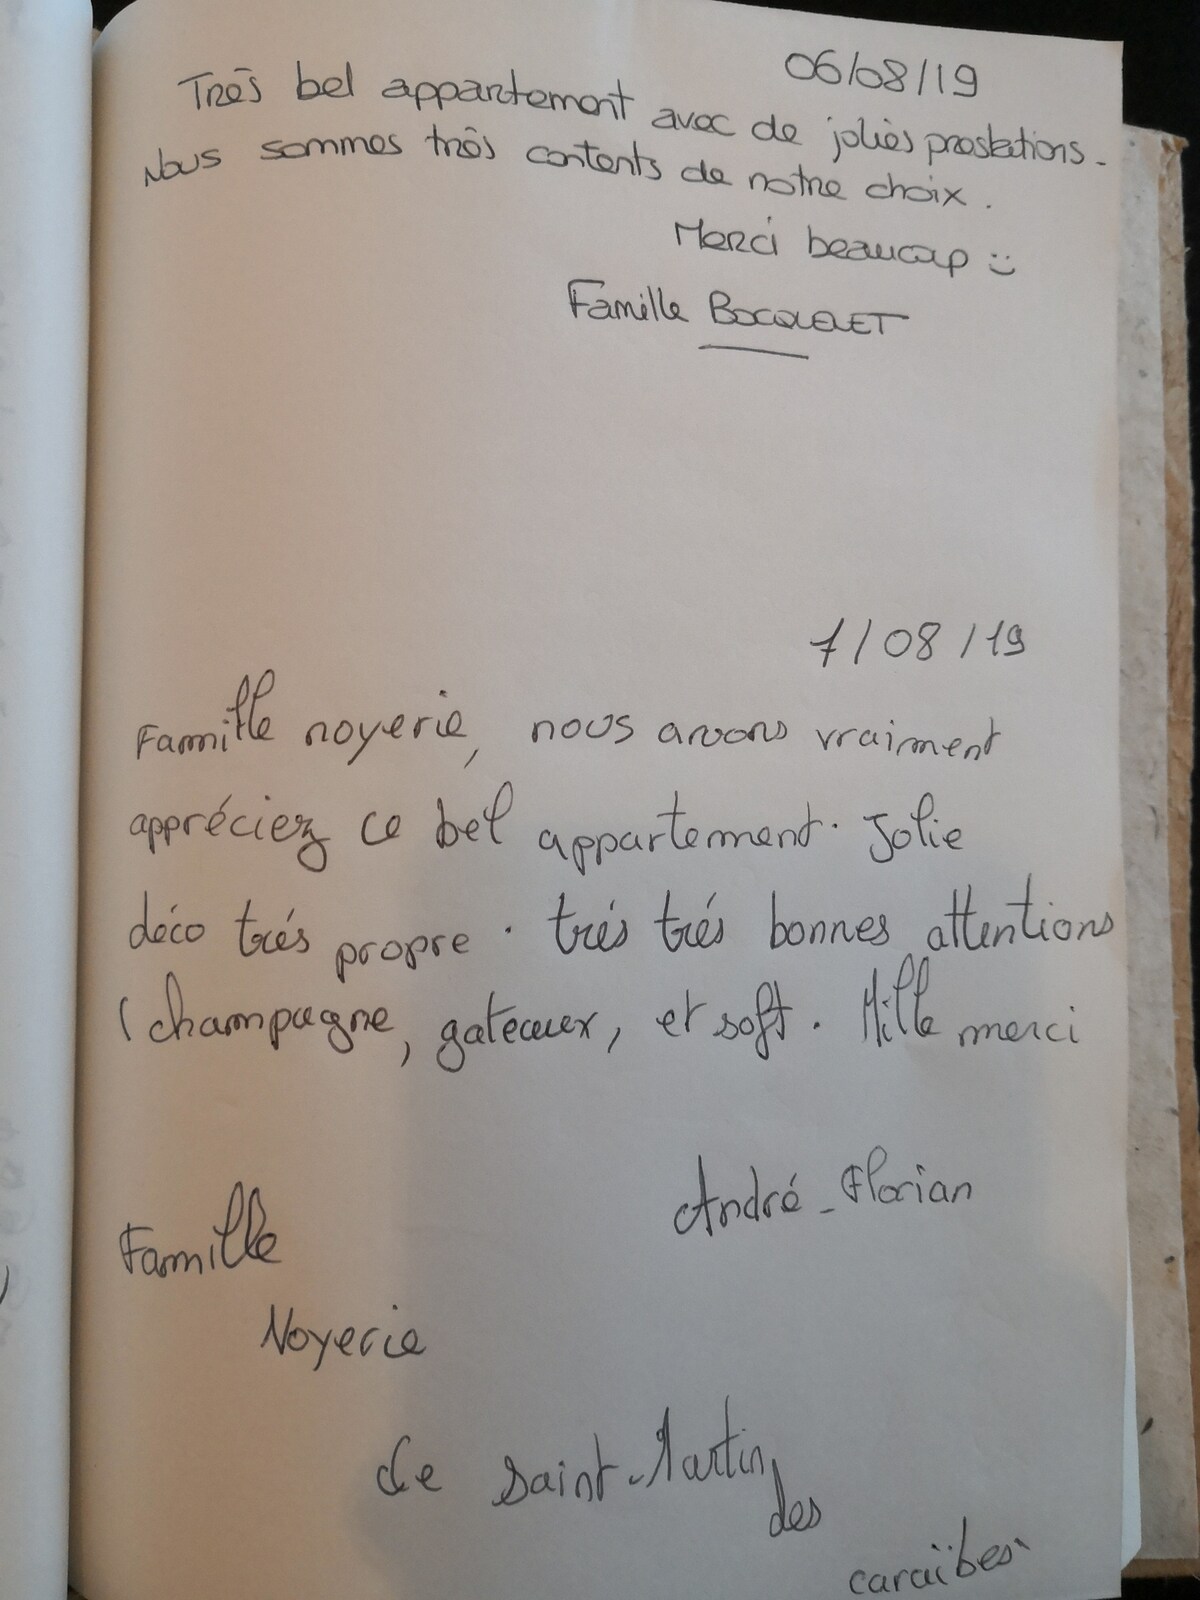 06/08/19
Très bel appartement avec de jolies prestations.
Nous sommes très contents de notre choix.
Merci beaucoup :)
Famille BOCQUELET
7/08/19
Famille noyerie, nous avons vraiment
appréciez ce bel appartement. Jolie
déco trés propre. trés trés bonnes attentions
(champagne, gateaux, et soft. Mille merci
André-Florian
Famille
Noyerie
de Saint-Martin
des
caraïbes